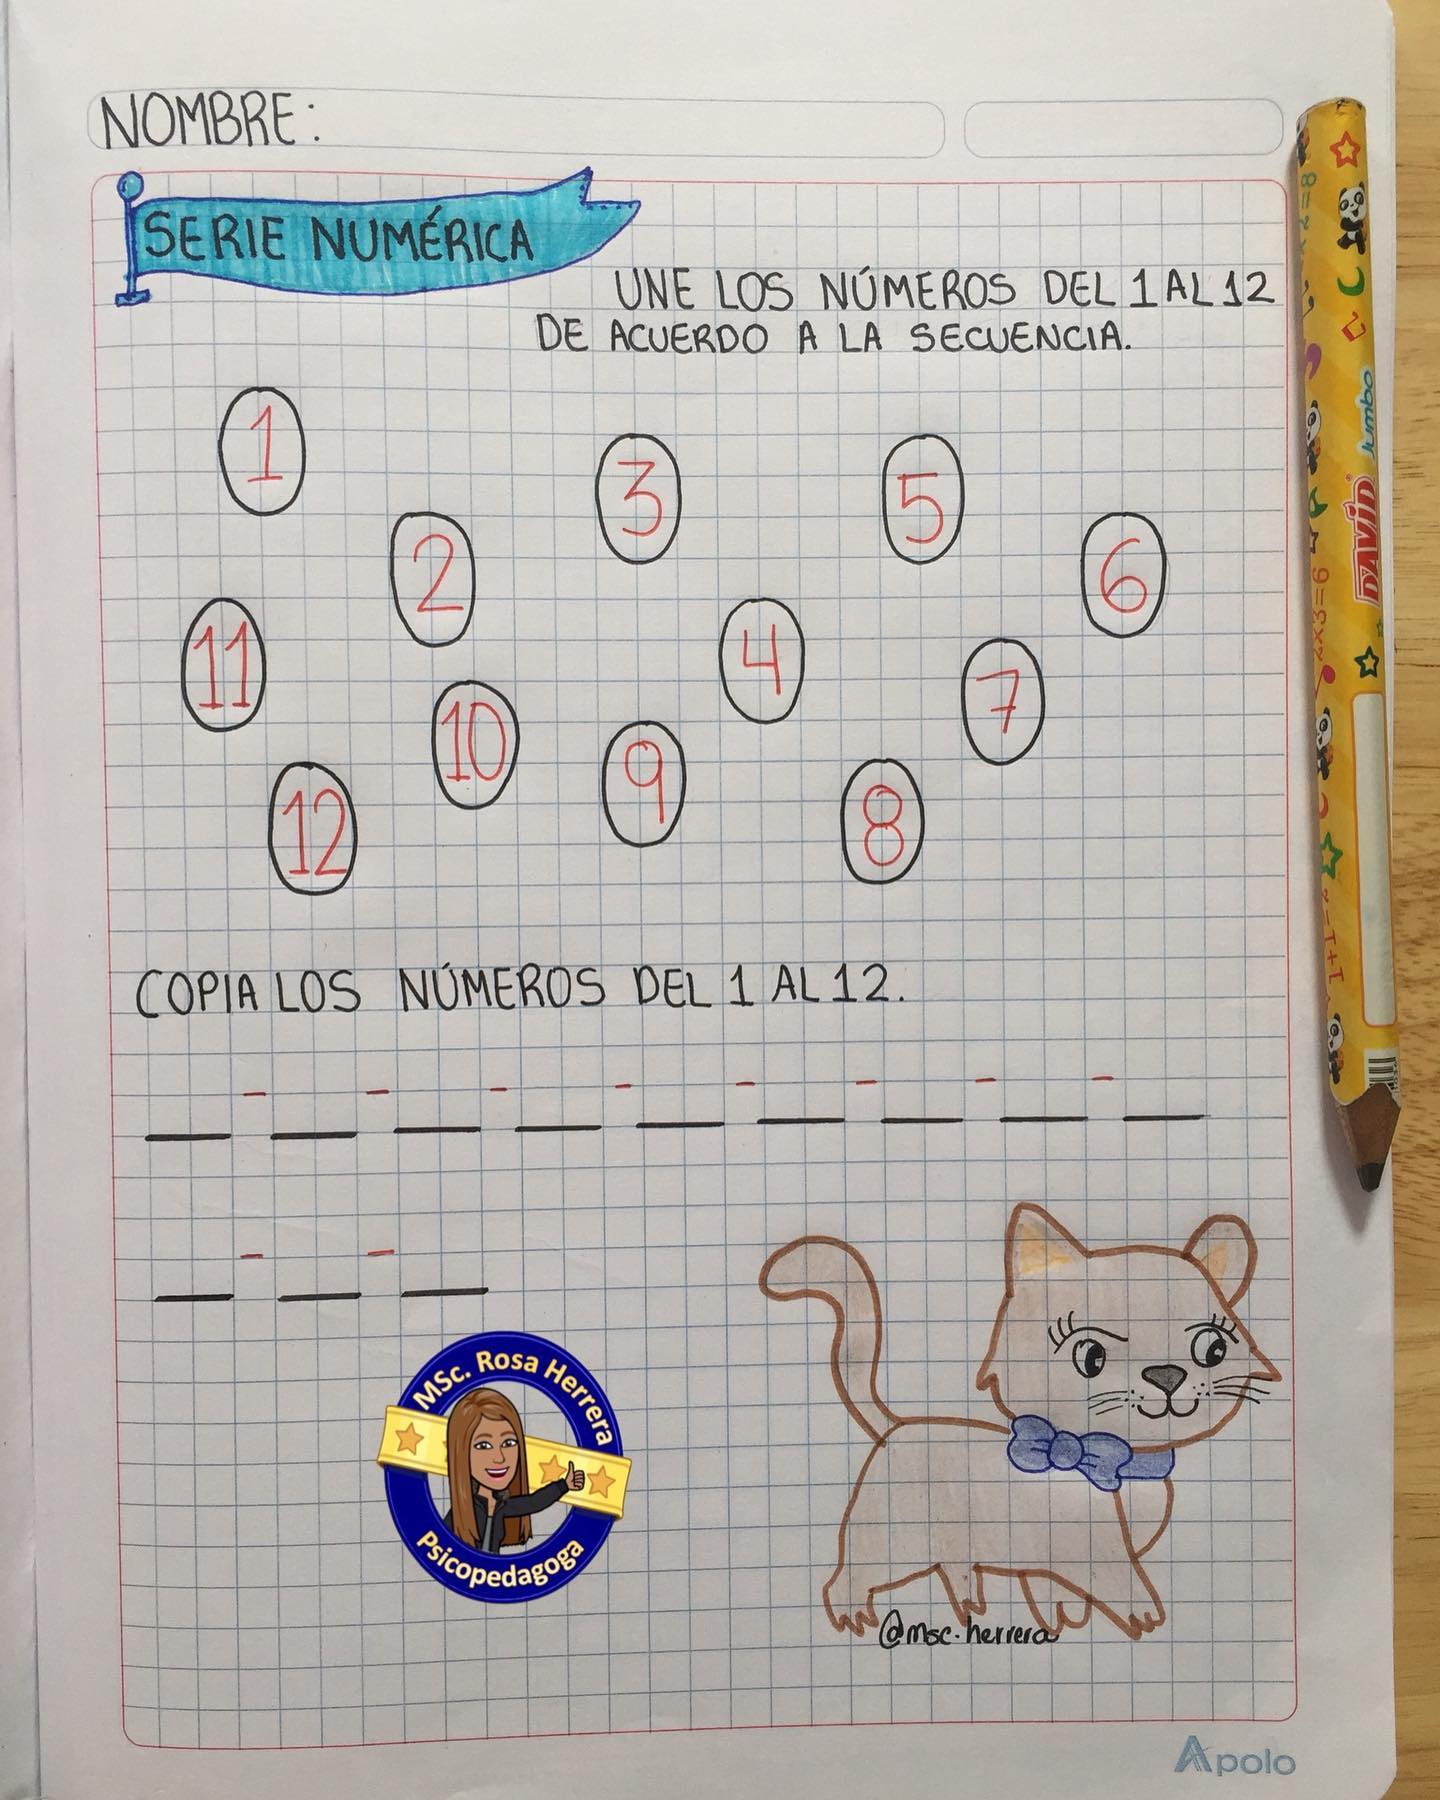 NOMBRE:
SERIE NUMÉRICA
UNE LOS NÚMEROS DEL 1 AL 12
DE ACUERDO A LA SECUENCIA.
1
3
5
2
6
11
4
7
10
9
12
8
COPIA LOS NÚMEROS DEL 1 AL 12.
MSc. Rosa Herrera
Psicopedagoga
@msc.herrera
Apolo
DAVID
Jumbo
2x3=6